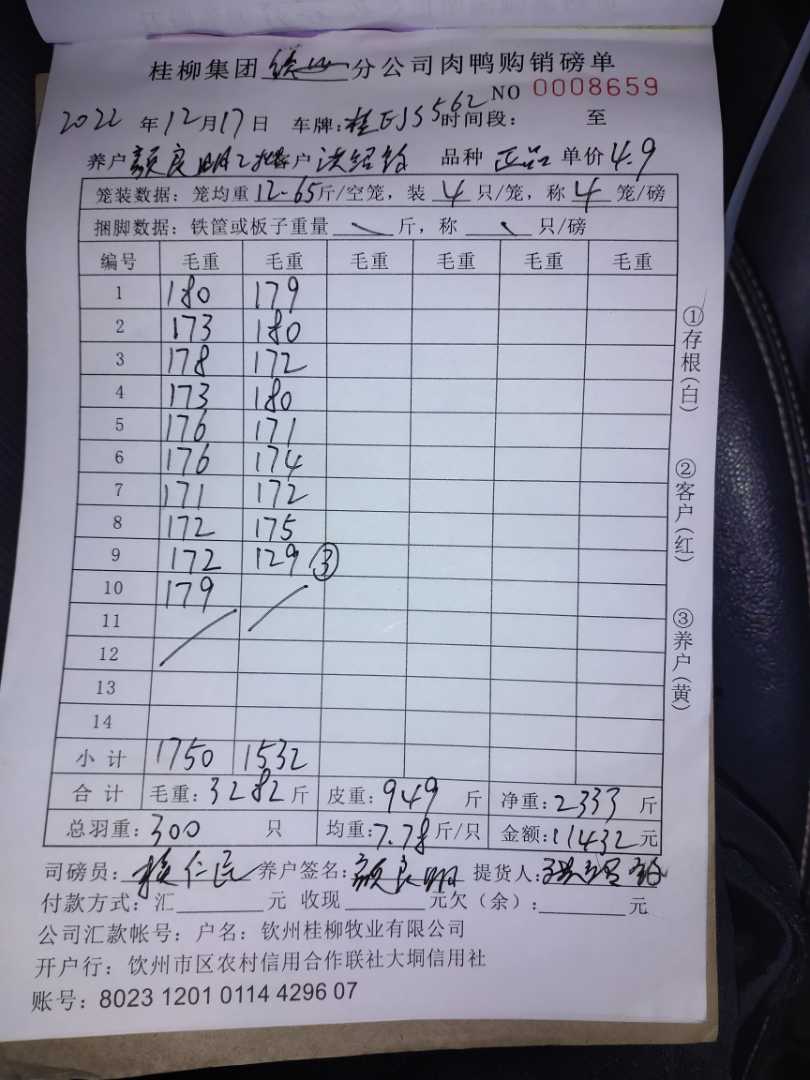 桂柳集团 钦州 分公司肉鸭购销磅单
NO 0008659
2022 年 12 月 17 日 车牌: 桂EJS562 时间段: 至
养户 颜良明 客户 洪绍 品种 正品 单价 4.9
笼装数据: 笼均重 12-65 斤/空笼, 装 4 只/笼, 称 4 笼/磅
捆脚数据: 铁筐或板子重量 斤, 称 只/磅
编号 毛重 毛重 毛重 毛重 毛重 毛重
1 180 179
2 173 180
3 178 172
4 173 180
5 176 171
6 176 174
7 171 172
8 172 175
9 172 129 ③
10 179
11
12
13
14
小计 1750 1532
合计 毛重: 3282 斤 皮重: 949 斤 净重: 2333 斤
总羽重: 300 只 均重: 7.78 斤/只 金额: 11432 元
司磅员: 养户签名: 颜良明 提货人:
付款方式: 汇 元 收现 元欠(余): 元
公司汇款帐号: 户名: 钦州桂柳牧业有限公司
开户行: 钦州市区农村信用合作联社大垌信用社
账号: 8023 1201 0114 4296 07
①存根(白)
②客户(红)
③养户(黄)